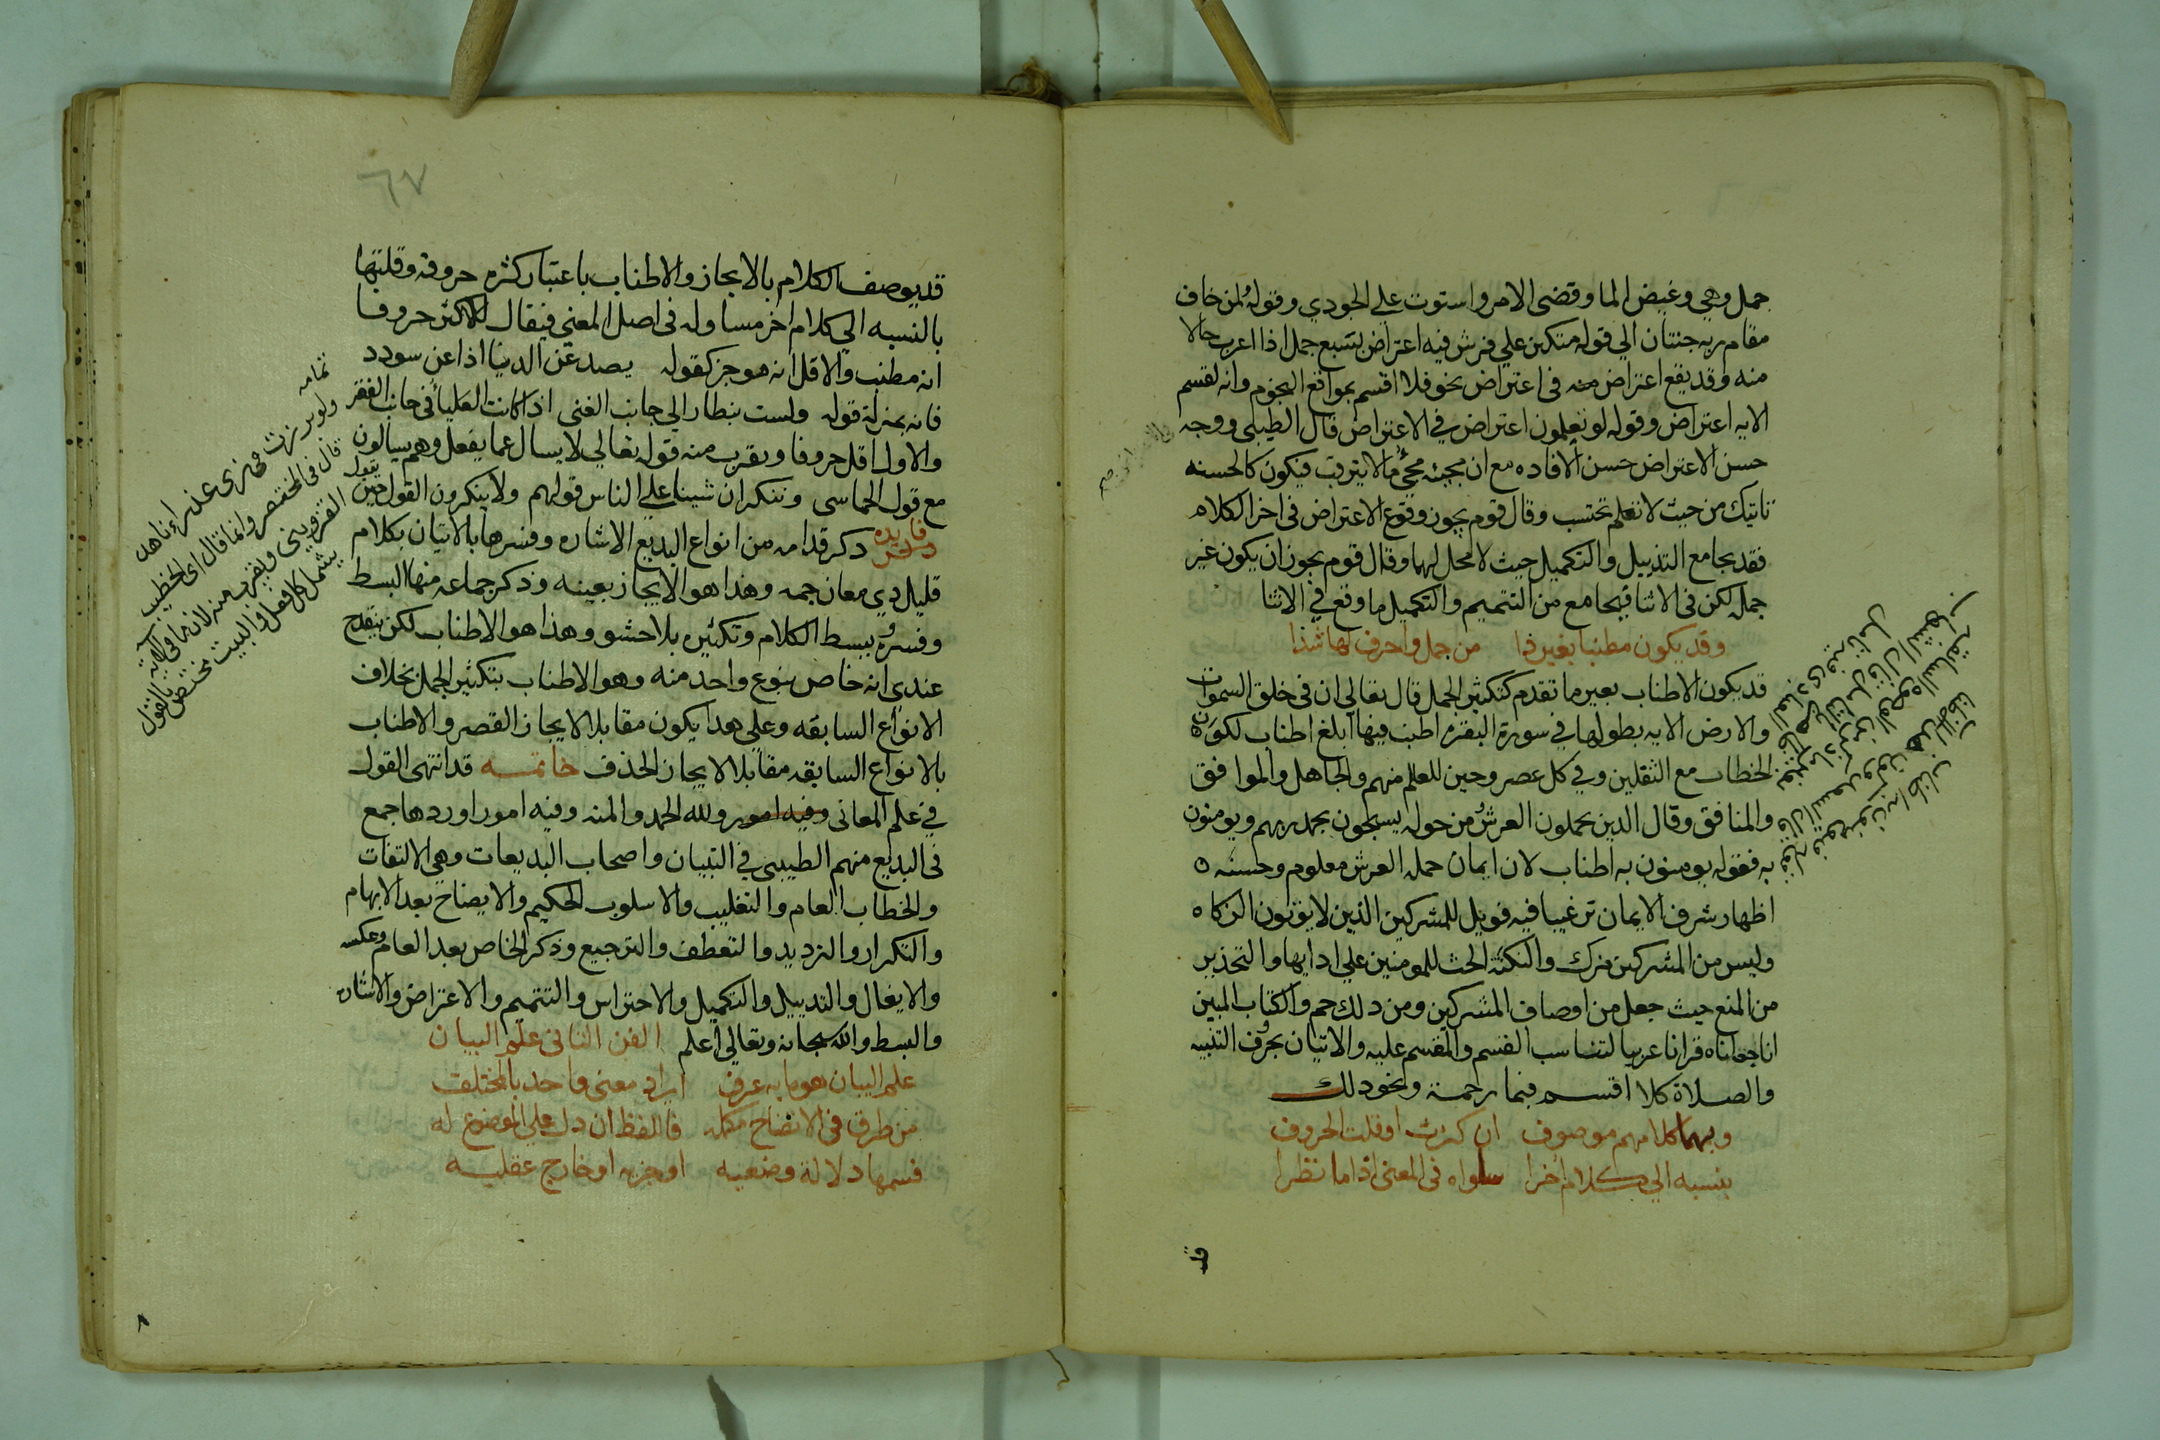 جمل وهي وغيض الما وقضى الامر واستوت على الجودي وقوله ولمن خاف
مقام ربه جنتان الي قوله متكين علي فرش فيه اعتراض بتسع جمل اذا اعرب حالا
منه وقد يقع اعتراض منه في اعتراض نحو فلا اقسم بمواقع النجوم وانه لقسم
الايه اعتراض وقوله لو تعلمون اعتراض في الاعتراض قال الطيبي ووجه
حسن الاعتراض حسن الافاده مع ان مجيئه مجئ مالا يترقب فيكون كالحسنه
تاتيك من حيث لا تعلم تحتسب وقال قوم يجوز وقوع الاعتراض في اخر الكلام
فقد يجامع التذييل والتكميل حيث لا محل لهما وقال قوم يجوز ان يكون غير
جمل لكن في الاثنا فيجامع من التتميم والتكميل ما وقع في الاثنا
وقد يكون مطنبا بغير ذا من جمل واحرف لها شذا
قد يكون الاطناب بعير ما تقدم كتكثير الجمل قال تعالي ان في خلق السموات
والارض الايه بطولها في سورة البقره اطنب فيها ابلغ اطناب لكون
الخطاب مع الثقلين وفي كل عصر وحين للعالم منهم والجاهل والموافق
والمنافق وقال الدين يحملون العرش ومن حوله يسبحون بحمد ربهم ويومنون
به فقوله يومنون به اطناب لان ايمان حمله العرش معلوم وحسنه ٥
اظهار شرف الايمان ترغيبا فيه فويل للمشركين الذين لا يوتون الزكاه
وليس من المشركين مزك والنكته الحث للمومنين علي ادايها والتحذير
من المنع حيث جعل من اوصاف المشركين ومن دلك حم والكتاب المبين
انا جعلناه قرانا عربيا لتناسب القسم والمقسم عليه والاتيان بحروف التنبيه
والصلاة كلا اقسم فبما رحمة ونحو دلك
وبهما كلامهم موصوف ان كثرت او قلت الحروف
بنسبه الي كلام اخرا سلواه في المعنى اذا ما نظرا
قد
٦٧
قد يوصف الكلام بالايجاز والاطناب باعتبار كثره حروفه وقلتها
بالنسبه الي كلام اخر مساو له في اصل المعني فيقال للاكثر حروفا
انه مطنب والاقل انه موجز كقوله يصد عن الدنيا اذا عن سودد
فانه بمنزلة قوله ولست بنظار الي جانب الغني اذا كانت العليا في جانب الفقر
والاول اقل حروفا ويقرب منه قوله تعالي لا يسال عما يفعل وهم يسالون
مع قول الحماسي وننكر ان شينا علي الناس قولهم ولا ينكرون القول حين نقول
فايده ذكر قدامه من انواع البديع الاشاره وفسرها بالاتيان بكلام
قليل دي معان جمه وهذا هو الايجاز بعينه وذكر جماعه منها البسط
وفسروه ببسط الكلام وتكثيره بلا حشو وهذا هو الاطناب لكن ينقدح
عندي انه خاص بنوع واحد منه وهو الاطناب بتكثير الجمل بخلاف
الانواع السابقه وعلي هدا يكون مقابلا لايجاز القصر والاطناب
بالانواع السابقه مقابلا لايجاز الحذف خاتمه قد انتهى القول
في علم المعاني وفيه امور ولله الحمد والمنه وفيه امور اوردها جمع
في البديع منهم الطيبي في التبيان واصحاب البديعات وهي الالتفات
والخطاب العام والتغليب والاسلوب الحكيم والايضاح بعد الابهام
والتكرار والترديد والتعطف والترجيع وذكر الخاص بعد العام وعكسه
والايغال والتدييل والتكميل والاحتراس والتتميم والاعتراض والاشاره
والبسط والله سبحانه وتعالي اعلم الفن الثاني علم البيان
علم البيان هو ما به عرف ايراد معنى واحد بالمختلف
من طرق في الاتضاح مكمله فاللفظ ان دل علي الموضوع له
فسمها دلالة وضعيه او جزءه او خارج عقليه
تمامه
ولو برزت في زي عذراء ناهد
قال في المختصر وانما قال اي الخطيب
القزويني ويقرب منه لان ما في الآية
يشمل كل فعل والبيت مختص بالقول